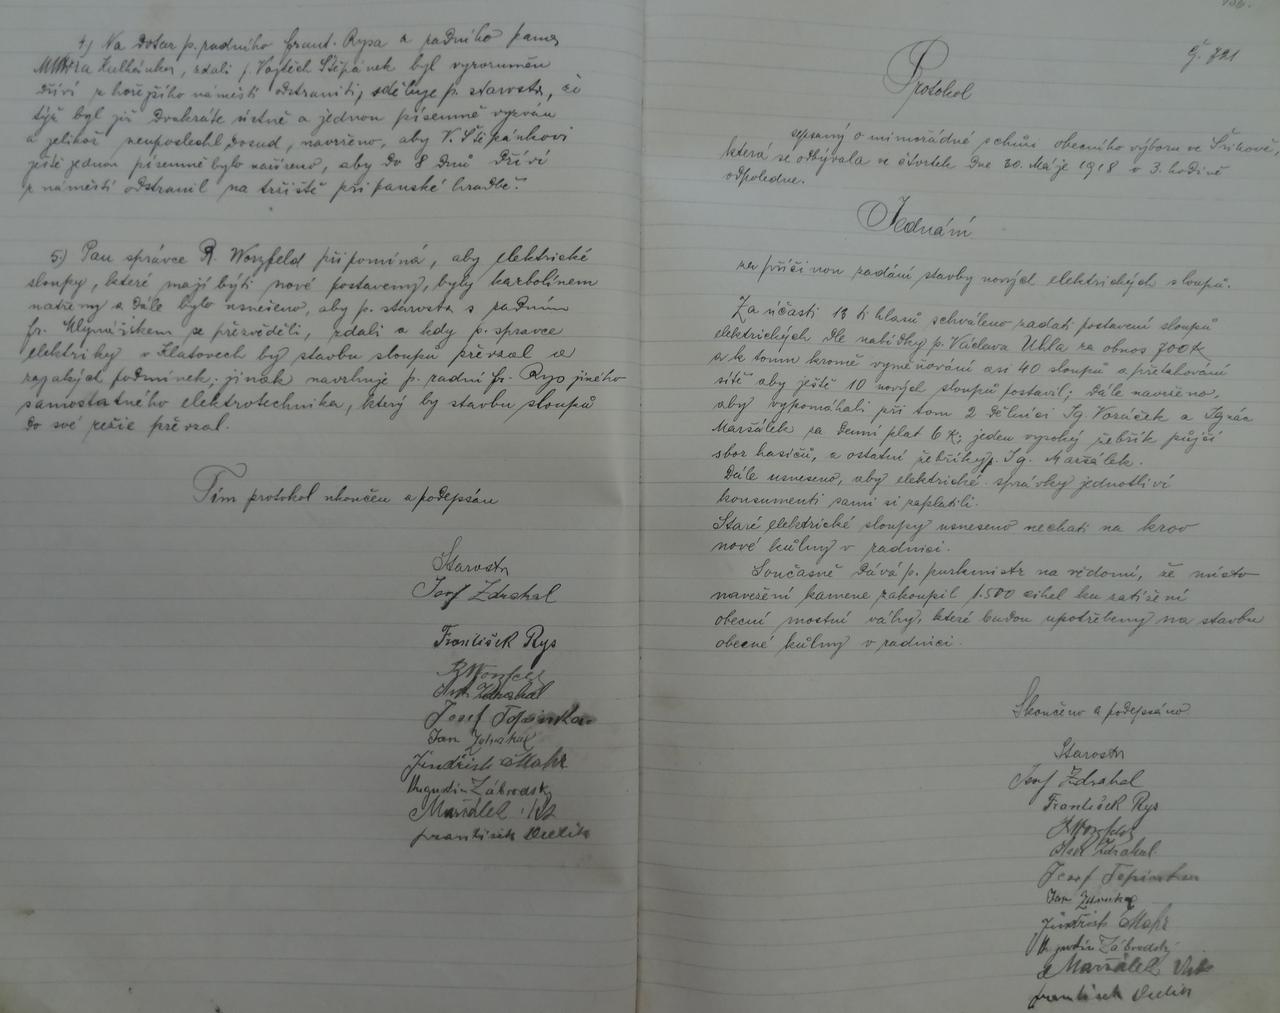 4.) Na dotaz p. radního Frant. Rysa a radního pana
zdali p. Vojtěch Štěpánek byl vyrozuměn
dříví z hořejšího náměstí odstraniti, sděluje p. starosta, že
týž byl již dvakráte ústně a jednou písemně vyzván
a jelikož neuposlechl dosud, navrženo, aby V. Štěpánkovi
ještě jednou písemně bylo nařízeno, aby do 8 dnů dříví
z náměstí odstranil na tržiště při panské hradbě.
5.) Pan správce R. Worzfeld připomíná, aby elektrické
sloupy, které mají býti nově postaveny, byly karbolínem
natřeny a dále bylo usneseno, aby p. starosta s radním
fr. Mlynaříkem se přezvěděli, zdali a kdy p. správce
elektriky v Klatovech by stavbu sloupů převzal a
za jakých podmínek; jinak navrhuje p. radní fr. Rys jiného
samostatného elektrotechnika, který by stavbu sloupů
do své režie převzal.
Tím protokol ukončen a podepsán
Starosta
Josef Zdrahal
František Rys
R Worzfeld
Ant. Zdrahal
Josef Topinka
Jan Zdrahal
Jindřich Mahr
Augustin Zábrodský
Maršálek
František Vielik
Č. 721
Protokol
sepsaný o mimořádné schůzi obecního výboru ve
která se odbývala ve čtvrtek dne 30. Máje 1918 o 3. hodině
odpoledne.
Jednání
za příčinou zadání stavby nových elektrických sloupů.
Za účasti 13 ti hlasů schváleno zadati postavení sloupů
elektrických dle nabídky p. Václava Uhla za obnos 700 K
a k tomu kromě vyměňování asi 40 sloupů a přetahování
sítě aby ještě 10 nových sloupů postavil; dále navrženo,
aby vypomáhali při tom 2 dělníci Ig. Vozáček a Ignác
Maršálek za denní plat 6 K; jeden vysoký žebřík půjčí
sbor hasičů, a ostatní žebříky p. Ig. Maršálek.
Dále usneseno, aby elektrické správky jednotliví
konsumenti sami si zaplatili.
Staré elektrické sloupy usneseno nechati na krov
nové kůlny v radnici.
Současně dává p. purkmistr na vědomí, že místo
navezení kamene zakoupil 1.500 cihel ku zatížení
obecní mostní váhy, které budou upotřebeny na stavbu
obecné kůlny v radnici.
Skončeno a podepsáno
Starosta
Josef Zdrahal
František Rys
R Worzfeld
Ant. Zdrahal
Josef Topinka
Jan Zdrahal
Jindřich Mahr
Augustin Zábrodský
Maršálek
František Vielik